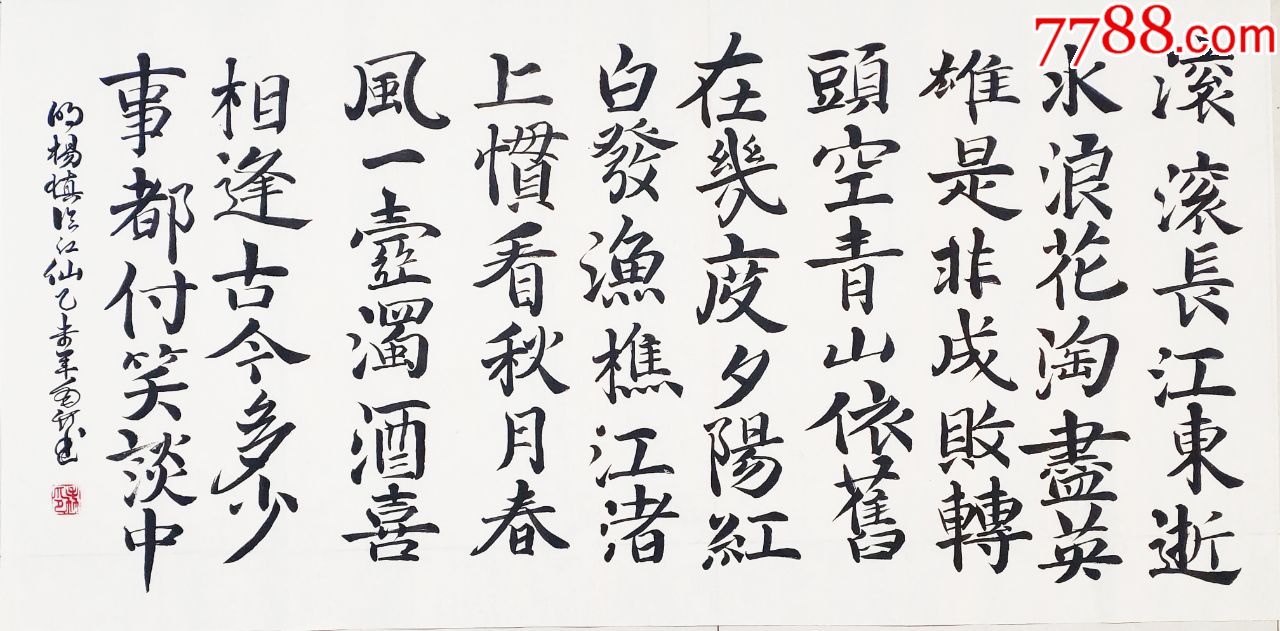 7788.com
滚滚長江東逝
水浪花淘盡英
雄是非成敗轉
頭空青山依舊
在幾度夕陽紅
白發漁樵江渚
上慣看秋月春
風一壺濁酒喜
相逢古今多少
事都付笑談中
明楊慎臨江仙乙未年